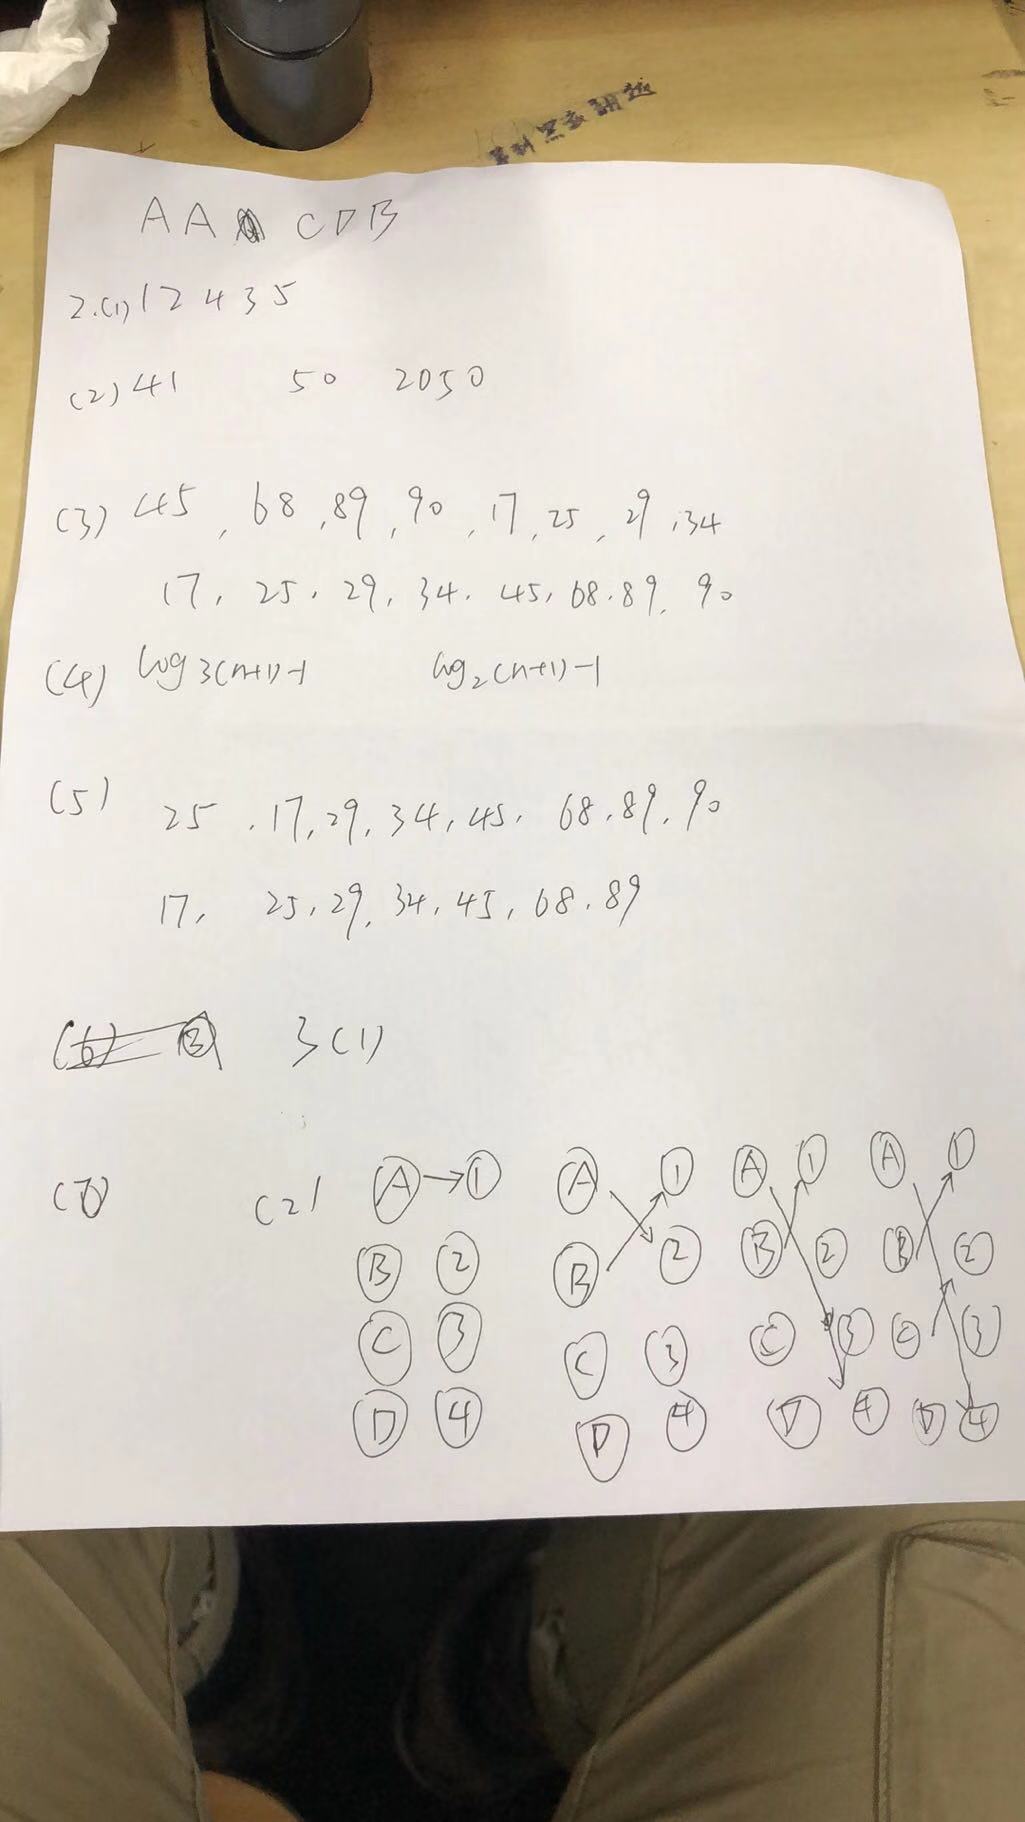 A A C D B
2.(1) 1 2 4 3 5
(2) 41 50 2050
(3) 45, 68, 89, 90, 17, 25, 29, 34
17, 25, 29, 34, 45, 68, 89, 90
(4) log3(n+1)-1 log2(n+1)-1
(5) 25, 17, 29, 34, 45, 68, 89, 90
17, 25, 29, 34, 45, 68, 89
(6) 3 3(1)
(2) A → 1 A 1 A 1 A 1
B 2 B 2 B 2 B 2
C 3 C 3 C 3 C 3
D 4 D 4 D 4 D 4